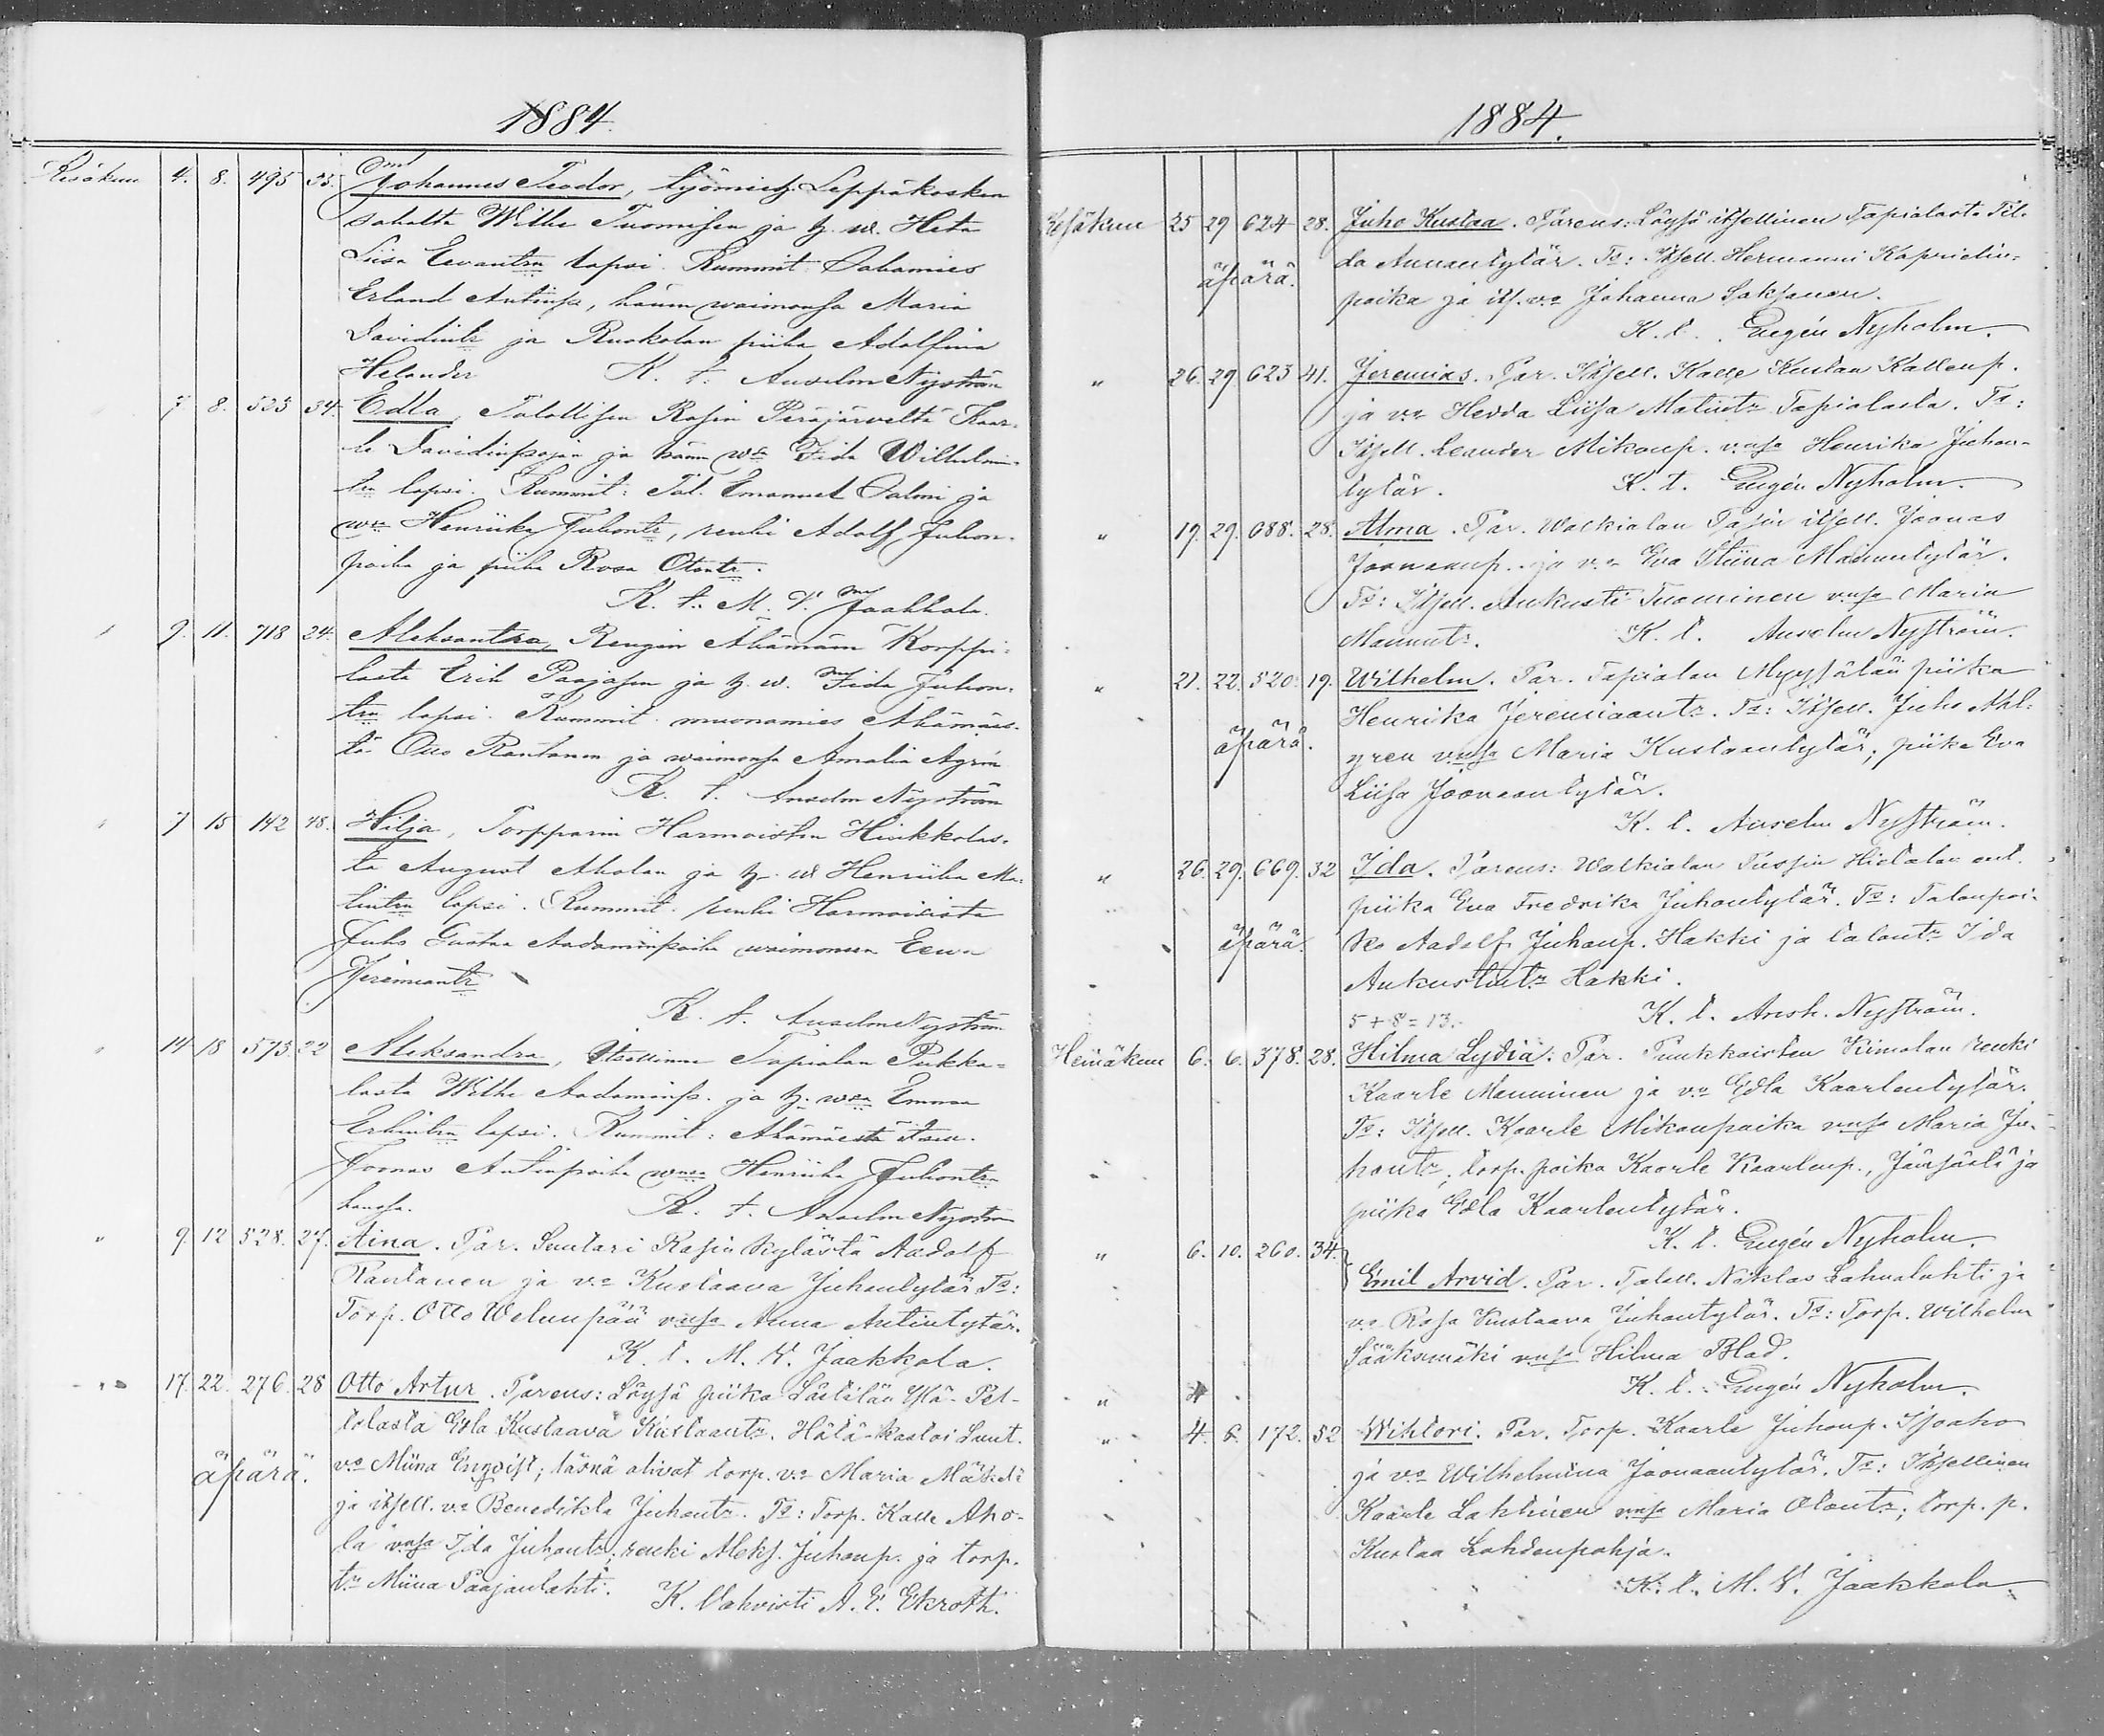 1884.
Kesäkun 4. 8. 495 35. Johannes Teodor, työmieh. Leppäkosken
sahalta Wilhe Tuomisen ja h. w. Heta
Liisa Eevantrn lapsi. Kummit: Sahamies
Erland Antinp, hänen waimonsa Maria
Davidintr ja Ruokolan piika Adolfina
Helander K. t. Anselm Nyström
7. 8. 523 34. Edla, Talollisen Rasin Peräjärveltä Kaar-
le Davidinpojan ja hänen wn Fida Wilhelmin-
trn lapsi. Kummit: Tal. Emanuel Salmi ja
wn Henriika Juhontr, renki Adolf Juhon-
poika ja piika Rosa Otontr.
K. t. M. V. Jaakkola.
9. 11. 718 24. Aleksantra, Rengin Ahämään Korppi-
lasta Erik Paajasen ja h. w. Fida Juhon-
trn lapsi. Kummit muonamies Ahämäes-
tä Otto Rantanen ja waimonsa Amalia
K. t. Anselm Nyström
7 15 142 48. Hilja, Torpparin Harmoisten Hinkkolas-
ta August Aholan ja h. w Henriika Ma-
tintrn lapsi. Kummit. renki Harmoisista
Juho Gustaa Aadaminpoika waimonsa Eewa
Jeremiantr
K. t. Anselm Nyström
14 18 573. 22 Aleksandra, Itsellinen Tapialan Pukka-
lasta Wilhe Aadaminp. ja h. wn Emma
Erkintrn lapsi. Kummit: Ahämäestä itsen.
Joonas Antinpoika wnsa Henriika Juhontrn
kanssa. K. t. Anselm Nyström
" 9. 12 528. 27. Aina. Par. Suutari Rasin kylästä Aadolf
Rantanen ja v:o Kustaava Juhontytär Ts:
Torp. Otto Welunpää vnsa Anna Antintytär.
K. t. M. W. Jaakkola.
" 17. 22. 276. 28 Otto Artur. Parens: Löysä piika Lästilän Ylä-Pel-
tolasta Edla Kustaava Kustaantr. Hätä-kastoi Suut.
äpärä. v:o Miina Enqvist; läsnä olivat torp. v:o Maria
ja itsell. v:o Benedikta Juhontr. Ts: Torp. Kalle Aho-
la vnsa Ida Juhontr; renki Aleks. Juhonp. ja torp.
tr Miina Paajanlahti. K. Vahvisti A. E. Ekroth.
1884.
Kesäkun 25 29 624 28. Juho Kustaa. Parens: Löysä itsellinen Tapialasta Til-
da Annantytär. Ts: Itsell. Hermanni Kaprielin-
äpärä. poika ja its. v:o Johanna Saksanen.
K. t. Eugén Nyholm.
" 26. 29 623 41. Jeremias. Par. Itsell. Kalle Kustaa Kallenp.
ja v:o Hedda Liisa Matintr Tapialasta. Ts:
Itsell. Leander Mikonp. vnsa Henrika Juhon-
tytär. K. t. Eugén Nyholm.
" 19. 29. 688. 28. Alma. Par. Walkialan Pasin itsell. Joonas
Joonaanp. ja v:o Eva Stiina Mainuntytär.
Ts: Itsell. Aukusti Tuominen vnsa Maria
Mainuntr. K. t. Anselm Nyström.
" 21. 22. 520. 19. Wilhelm. Par. Tapialan Myysälän piika
Henrika Jeremiaantr. Ts: Itsell. Juho Ahl-
äpärä. gren vnsa Maria Kustaantytär, piika Eva
Liisa Joonaantytär.
K. t. Anselm Nyström.
" 26. 29. 669. 32 Ida. Parens: Walkialan Pussin Hietalan ent.
piika Eva Fredrika Juhontytär. Ts: Talonpoi-
äpärä. ka Aadolf Juhonp. Hakki ja talontr Ida
Aukustintr Hakki.
5 + 8 = 13. K. t. Ansh. Nyström.
Heinäkun 6. 6. 378. 28. Hilma Lydia. Par. Puukkoisten Kiimolan renki
Kaarle Manninen ja v:o Edla Kaarlentytär.
Ts: Itsell. Kaarle Mikonpoika vnsa Maria Ju-
hontr, torp. poika Kaarle Kaarlenp., Jänsästä ja
piika Edla Kaarlentytär.
K. t. Eugén Nyholm.
" 6. 10. 260. 34. Emil Arvid. Par. Talell. Niklas Lahnalahti ja
v:o Rosa Kustaava Juhontytär. Ts: Torp. Wilhelm
Sääksmäki vnsa Hilma Blad.
K. t. Eugén Nyholm.
" 4. 6. 172. 52 Wihtori. Par. Torp. Kaarle Juhonp. Isoaho
ja v:o Wilhelmina Joonaantytär. Ts: Itsellinen
Kaarle Lahtinen vnsa Maria Otontr; torp. p.
Kustaa Lahdenpohja.
K. t. M. W. Jaakkola